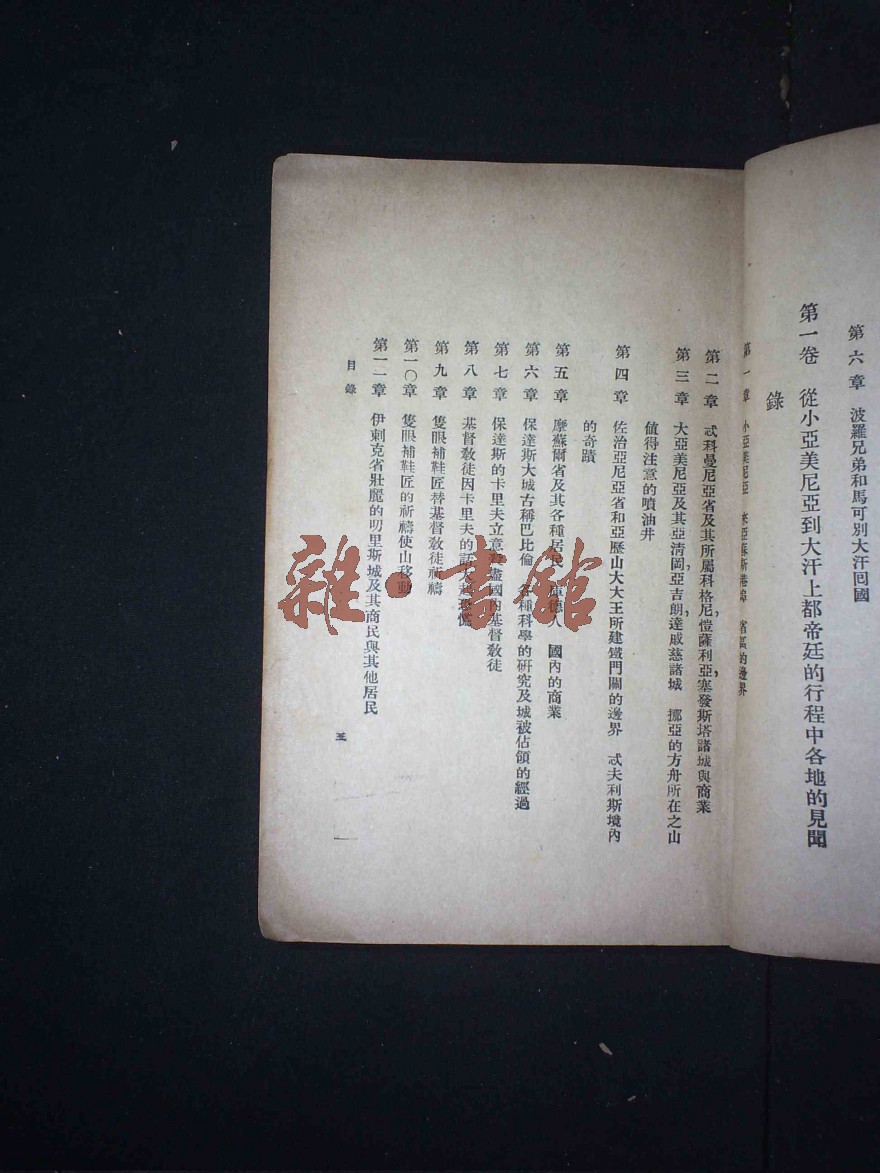 第六章　波羅兄弟和馬可別大汗回國
第一卷　從小亞美尼亞到大汗上都帝廷的行程中各地的見聞
錄
第一章　小亞美尼亞　來亞蘇斯港埠　省區的邊界
第二章　忒科曼尼亞省及其所屬科格尼,愷薩利亞,塞發斯塔諸城與商業
第三章　大亞美尼亞及其亞淸岡,亞吉朗,達威慈諸城　挪亞的方舟所在之山
值得注意的噴油井
第四章　佐治亞尼亞省和亞歷山大大王所建鐵門關的邊界　忒夫利斯境內
的奇蹟
第五章　摩蘇爾省及其各種居民　庫德人　國內的商業
第六章　保達斯大城古稱巴比倫　各種科學的研究及城被佔領的經過
第七章　保達斯的卡里夫立意盡國內基督敎徒
第八章　基督敎徒因卡里夫的話大起
第九章　隻眼補鞋匠替基督敎徒祈禱
第一〇章　隻眼補鞋匠的祈禱使山移動
第一一章　伊剌克省壯麗的叨里斯城及其商民與其他居民
目錄
五
雜·書館